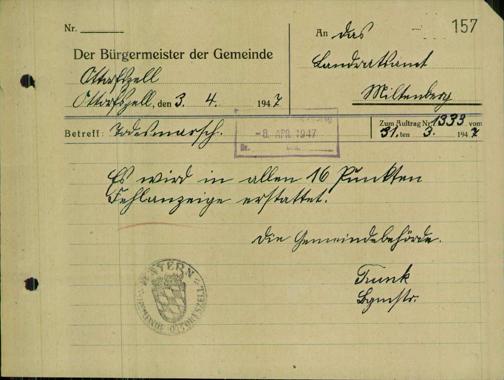 Nr.
An das
157
Der Bürgermeister der Gemeinde
Landratsamt
Ottorfszell
Miltenberg
Ottorfszell, den 3. 4. 1947
Zum Auftrag Nr. 1333 vom:
31. ten 3. 1947
Betreff: Todesmarsch.
-8. APR. 1947
Es wird in allen 16 Punkten
Fehlanzeige erstattet.
Die Gemeindebehörde.
Trunk
Bgmstr.
BAYERN